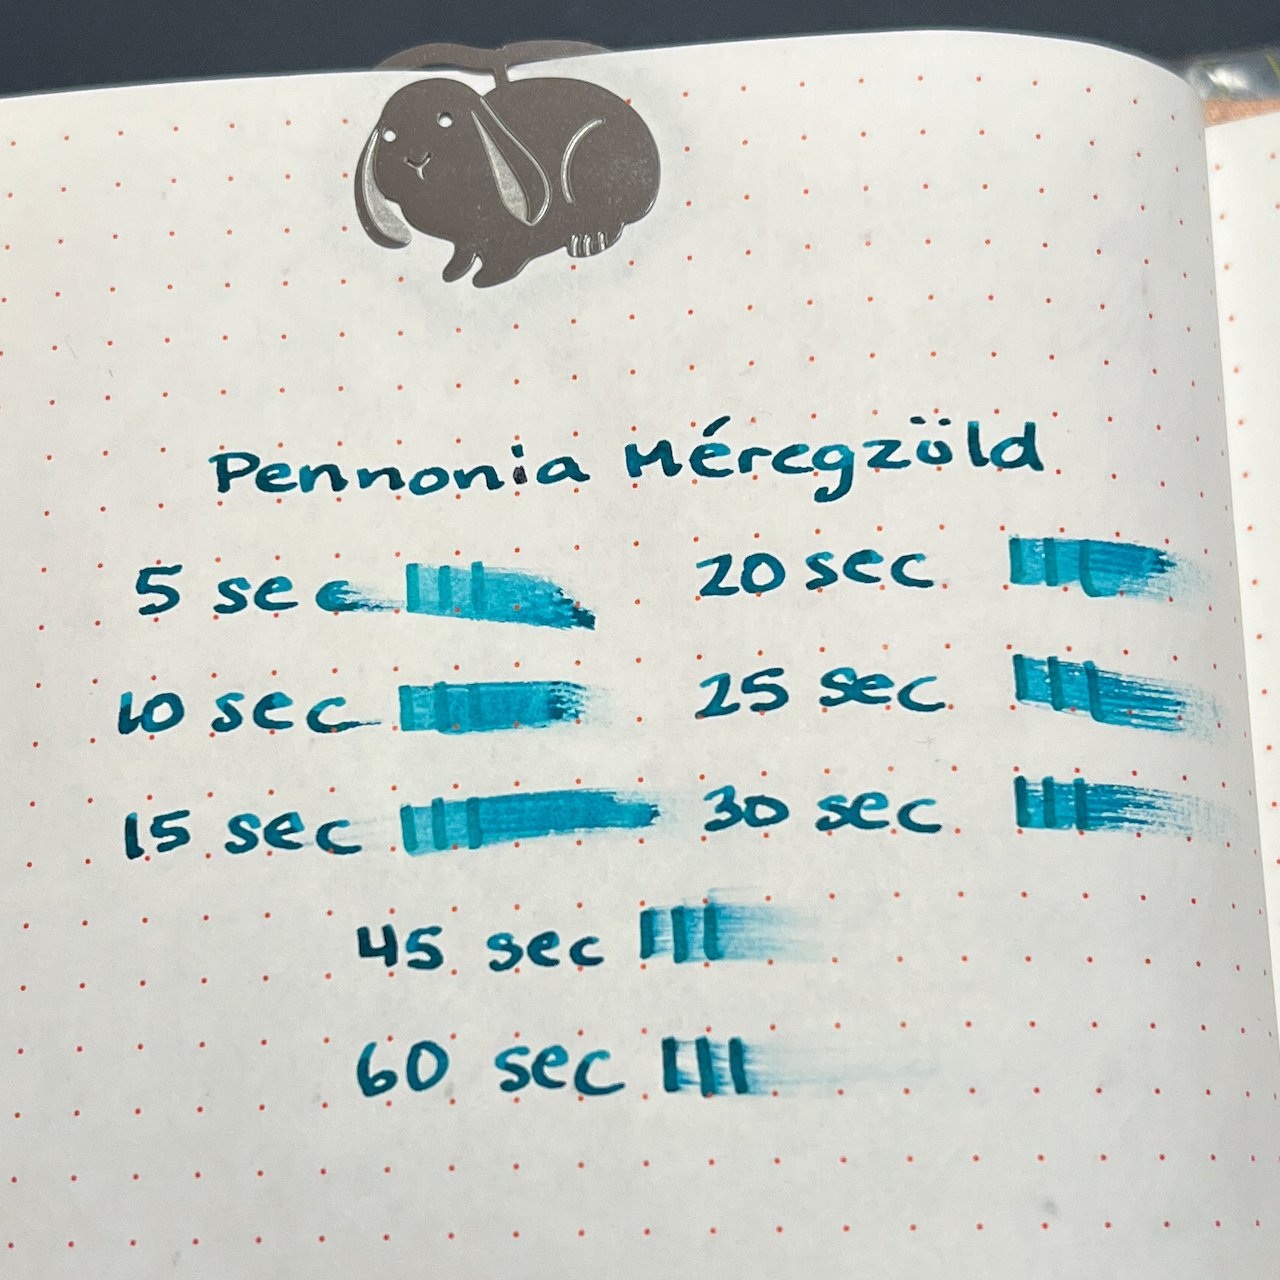 Pennonia Méregzöld
5 sec 20 sec
10 sec 25 sec
15 sec 30 sec
45 sec
60 sec